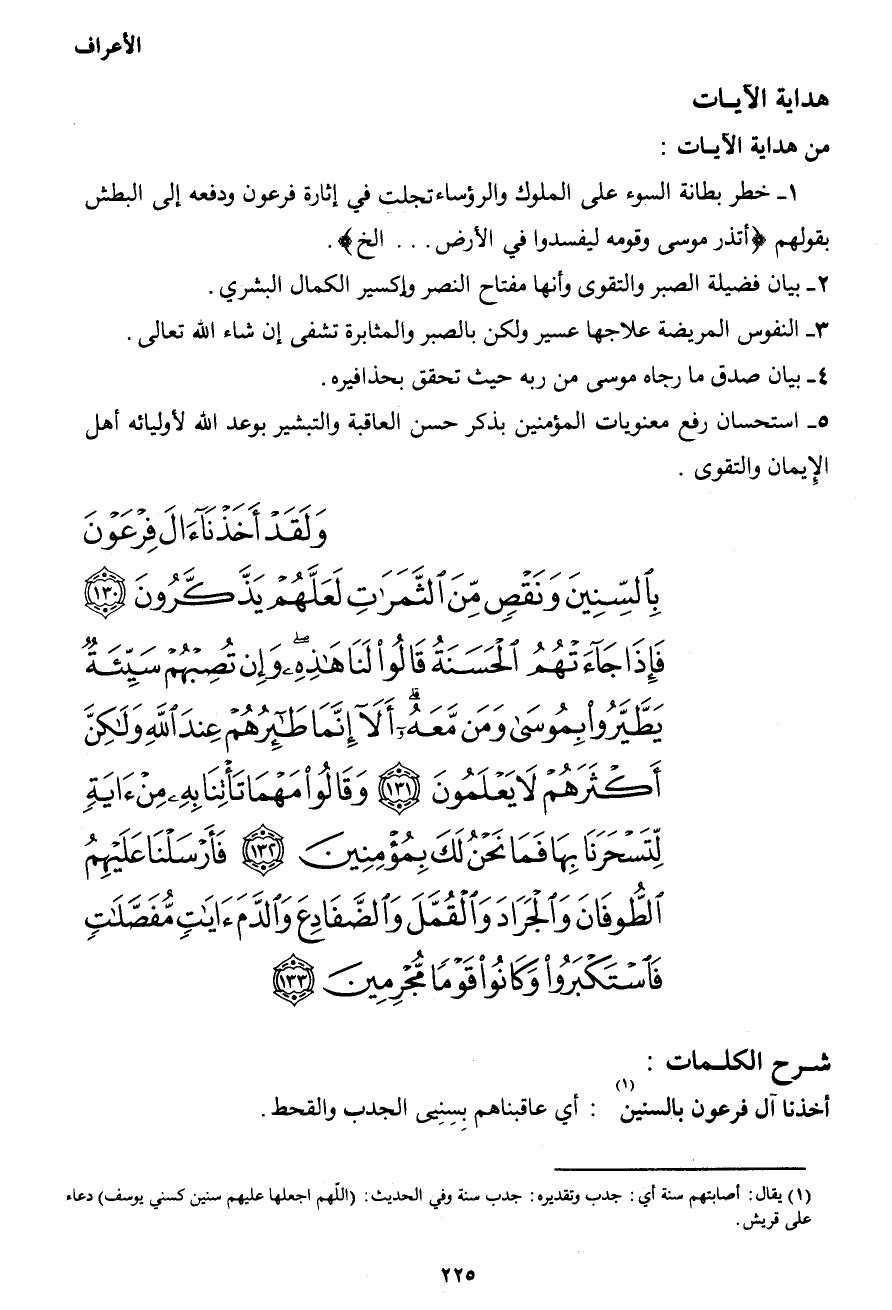 الأعراف
هداية الآيـات
من هداية الآيـات :
١ـ خطر بطانة السوء على الملوك والرؤساء تجلت في إثارة فرعون ودفعه إلى البطش
بقولهم ﴿أتذر موسى وقومه ليفسدوا في الأرض... الخ﴾.
٢ـ بيان فضيلة الصبر والتقوى وأنها مفتاح النصر وإكسير الكمال البشري .
٣ـ النفوس المريضة علاجها عسير ولكن بالصبر والمثابرة تشفى إن شاء الله تعالى .
٤ـ بيان صدق ما رجاه موسى من ربه حيث تحقق بحذافيره.
٥ـ استحسان رفع معنويات المؤمنين بذكر حسن العاقبة والتبشير بوعد الله لأوليائه أهل
الإيمان والتقوى .
وَلَقَدۡ أَخَذۡنَآ ءَالَ فِرۡعَوۡنَ
بِٱلسِّنِينَ وَنَقۡصٖ مِّنَ ٱلثَّمَرَٰتِ لَعَلَّهُمۡ يَذَّكَّرُونَ ١٣٠
فَإِذَا جَآءَتۡهُمُ ٱلۡحَسَنَةُ قَالُواْ لَنَا هَٰذِهِۦۖ وَإِن تُصِبۡهُمۡ سَيِّئَةٞ
يَطَّيَّرُواْ بِمُوسَىٰ وَمَن مَّعَهُۥٓۗ أَلَآ إِنَّمَا طَٰٓئِرُهُمۡ عِندَ ٱللَّهِ وَلَٰكِنَّ
أَكۡثَرَهُمۡ لَا يَعۡلَمُونَ ١٣١ وَقَالُواْ مَهۡمَا تَأۡتِنَا بِهِۦ مِنۡ ءَايَةٖ
لِّتَسۡحَرَنَا بِهَا فَمَا نَحۡنُ لَكَ بِمُؤۡمِنِينَ ١٣٢ فَأَرۡسَلۡنَا عَلَيۡهِمُ
ٱلطُّوفَانَ وَٱلۡجَرَادَ وَٱلۡقُمَّلَ وَٱلضَّفَادِعَ وَٱلدَّمَ ءَايَٰتٖ مُّفَصَّلَٰتٖ
فَٱسۡتَكۡبَرُواْ وَكَانُواْ قَوۡمٗا مُّجۡرِمِينَ ١٣٣
شـرح الكلـمات :
أخذنا آل فرعون بالسنين(١) : أي عاقبناهم بِسِنِيِى الجدب والقحط.
(١) يقال: أصابتهم سنة أي: جدب وتقديره: جدب سنة وفي الحديث: (اللّهم اجعلها عليهم سنين كسني يوسف) دعاء
على قريش.
٢٢٥